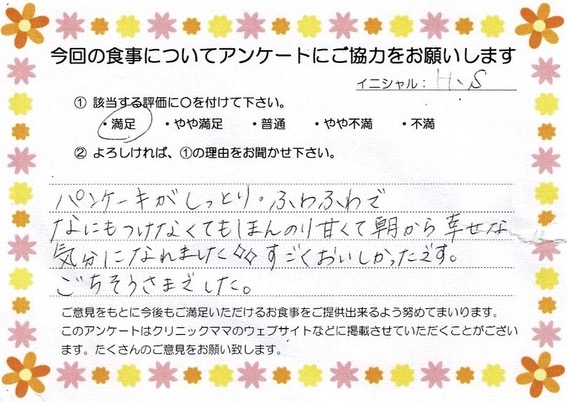 今回の食事についてアンケートにご協力をお願いします
イニシャル： H.S
① 該当する評価に〇を付けて下さい。
・満足 ・やや満足 ・普通 ・やや不満 ・不満
② よろしければ、①の理由をお聞かせ下さい。
パンケーキがしっとり・ふわふわで
なにもつけなくてもほんのり甘くて朝から幸せな
気分になれました◇◇すごくおいしかったです。
ごちそうさまでした。
ご意見をもとに今後もご満足いただけるお食事をご提供出来るよう努めてまいります。
このアンケートはクリニックママのウェブサイトなどに掲載させていただくことがござい
ます。たくさんのご意見をお願い致します。